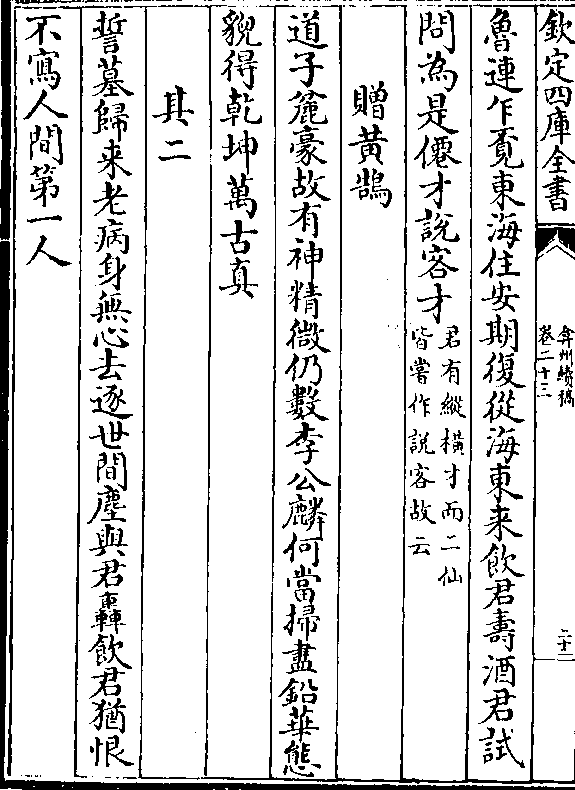 欽定四庫全書
弇州續稿
卷二十三
二十二
魯連乍覓東海住安期復從海東来飲君壽酒君試
問為是僊才說客才
君有縱橫才而二仙
皆嘗作說客故云
贈黄鵠
道子麄豪故有神精微仍數李公麟何當掃盡鉛華態
貌得乾坤萬古真
其二
誓墓歸来老病身無心去逐世間塵與君轟飲君猶恨
不寫人間第一人